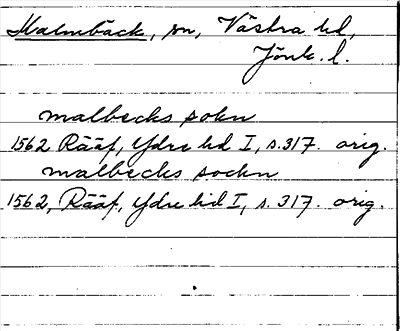 Malmbäck, sn, Västra hd,
Jönk. l.
malbecks sokn
1562 Rääf, Ydre hd I, s. 317. orig.
malbecks sockn
1562, Rääf, Ydre hd I, s. 317. orig.